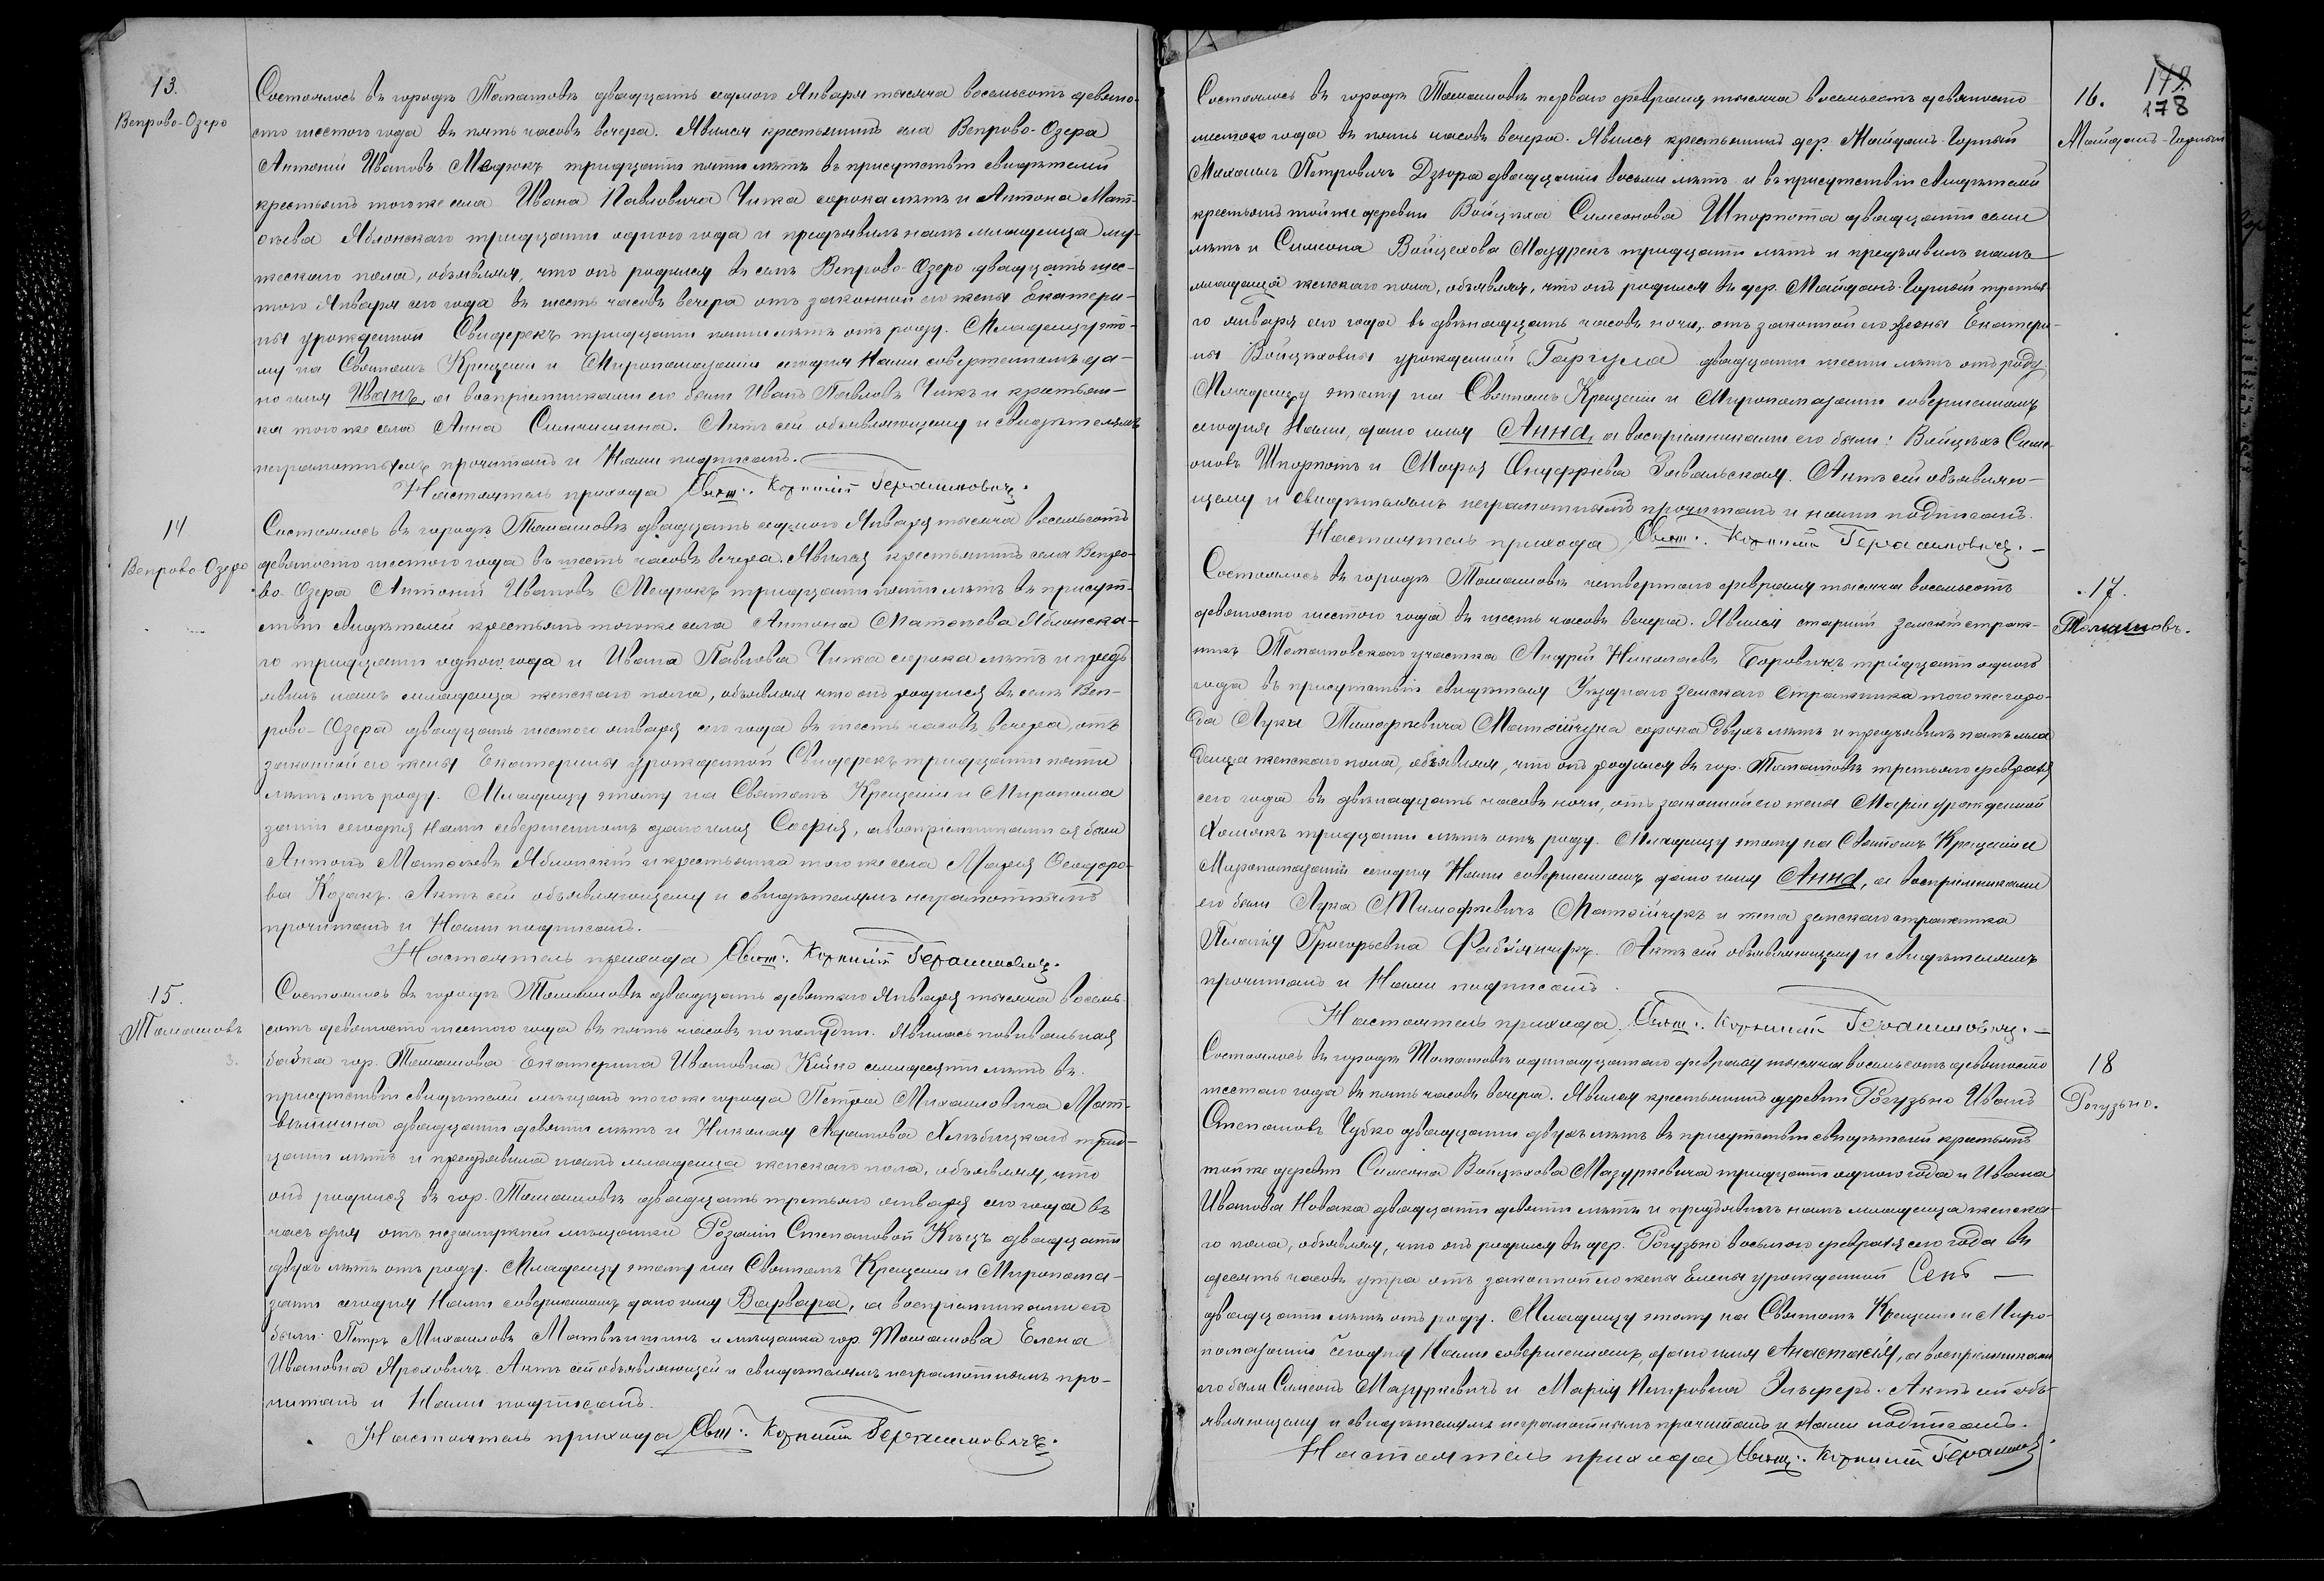 13.
Вепрово-Озеро
Состоялось въ городѣ Томашовѣ двадцать седьмого Января тысяча восемьсотъ девяно-
сто шестого года въ пять часовъ вечера. Явился крестьянинъ села Вепрово-Озера
Антоній Ивановъ Мазюкъ тридцати пяти лѣтъ въ присутствіи свидѣтелей
крестьянъ того же села Ивана Павловича Чижа сорока лѣтъ и Антона Мат-
ѳѣева Яблонскаго тридцати одного года и предъявилъ намъ младенца му-
жескаго пола, объявляя, что онъ родился въ селѣ Вепрово-Озеро двадцать шес-
того Января сего года въ шесть часовъ вечера отъ законной его жены Екатери-
ны урожденной Свидерекъ тридцати пяти лѣтъ отъ роду. Младенцу это-
му на Святомъ Крещеніи и Миропомазаніи сегодня Нами совершенномъ да-
но имя Иванъ, а воспріемниками его были Иванъ Павловъ Чижъ и крестьян-
ка того же села Анна. Актъ сей объявляющему и свидѣтелямъ
неграмотнымъ прочитанъ и Нами подписанъ.
Настоятель прихода Свящ: Корнилій Герасимовичъ.
14
Вепрово-Озеро
Состоялось въ городѣ Томашовѣ двадцать седьмого Января тысяча восемьсотъ
девяносто шестого года въ шесть часовъ вечера. Явился крестьянинъ села Вепро-
во-Озера Антоній Ивановъ Мазюкъ тридцати пяти лѣтъ въ присут-
ствіи свидѣтелей крестьянъ того же села Антона Матѳѣева Яблонска-
го тридцати одного года и Ивана Павлова Чижа сорока лѣтъ и предъ
явилъ намъ младенца женскаго пола, объявляя что онъ родился въ селѣ Веп-
рово-Озера двадцать шестого января сего года въ шесть часовъ вечера, отъ
законной его жены Екатерины урожденной Свидерекъ тридцати пяти
лѣтъ отъ роду. Младенцу этому на Святомъ Крещеніи и Миропома
заніи сегодня Нами совершенномъ дано имя Софія, а воспріемниками ея были
Антонъ Матѳѣевъ Яблонскій и крестьянка того же села Марія Ѳеодоро-
ва Козакъ. Актъ сей объявляющему и свидѣтелямъ неграмотнымъ
прочитанъ и Нами подписанъ.
Настоятель прихода Свящ: Корнилій Герасимовичъ.
15.
Томашовъ
Состоялось въ городѣ Томашовѣ двадцать девятаго Января тысяча восемь-
сотъ девяносто шестого года въ пять часовъ по полудни. Явилась повивальная
бабка гор. Томашова Екатерина Ивановна Кійко семидесяти лѣтъ въ
присутствіи свидѣтелей мѣщанъ того же города Петра Михаиловича Мат-
вѣишина двадцати девяти лѣтъ и Николая Адамова Хлѣбицкаго трид-
цати лѣтъ и предъявила намъ младенца женскаго пола, объявляя, что
онъ родился въ гор. Томашовѣ двадцать третьяго января сего года въ
часъ дня отъ незамужней мѣщанки Розаліи Степановой Кѣцъ двадцати
двухъ лѣтъ отъ роду. Младенцу этому на Святомъ Крещеніи и Миропома-
заніи сегодня Нами совершенномъ дано имя Варвара, а воспріемниками ея
были: Петръ Михаиловъ Матвѣишинъ и мѣщанка гор. Томашова Елена
Ивановна Яреловичъ. Актъ сей объявляющей и свидѣтелямъ неграмотнымъ про-
читанъ и Нами подписанъ.
Настоятель прихода Свящ: Корнилій Герасимовичъ.
178
16.
Майданъ-Горный
Состоялось въ городѣ Томашовѣ перваго февраля тысяча восемьсотъ девяносто
шестого года въ пять часовъ вечера. Явился крестьянинъ дер. Майданъ-Горный
Михаилъ Петровичъ Дзюра двадцати восьми лѣтъ и въ присутствіи свидѣтелей
крестьянъ той же деревни Войцѣха Симеонова Шпорнота двадцати семи
лѣтъ и Симеона Войцехова Мазурекъ тридцати лѣтъ и предъявилъ намъ
младенца женскаго пола, объявляя, что онъ родился въ дер. Майданъ-Горный третья-
го января сего года въ двѣнадцать часовъ ночи, отъ законной его жены Екатери-
ны Войцѣховны урожденной Гаргула двадцати шести лѣтъ отъ роду
Младенцу этому на Святомъ Крещеніи и Миропомазаніи совершенномъ
сегодня Нами, дано имя Анна, а воспріемниками его были: Войцѣхъ Симе-
оновъ Шпорнотъ и Марія Онуфріева Завальская. Актъ сей объявляю-
щему и свидѣтелямъ неграмотнымъ прочитанъ и нами подписанъ.
Настоятель прихода Свящ: Корнилій Герасимовичъ.
17.
Томашовъ.
Состоялось въ городѣ Томашовѣ четвертаго февраля тысяча восемьсотъ
девяносто шестого года въ шесть часовъ вечера. Явился старшій земскій страж-
никъ Томашовскаго участка Андрей Николаевъ Боровикъ тридцати одного
года въ присутствіи свидѣтеля Уѣзднаго Земскаго Стражника того же горо-
да Луки Тимофѣевича Матвійчука сорока двухъ лѣтъ и предъявилъ намъ мла
денца женскаго пола, объявляя, что онъ родился въ гор. Томашовѣ третьяго февраля
сего года въ двѣнадцать часовъ ночи, отъ законной его жены Маріи урожденной
Хомякъ тридцати лѣтъ отъ роду. Младенцу этому на Святомъ Крещеніи и
Миропомазаніи сегодня Нами совершенномъ дано имя Анна, а воспріемниками
его были Лука Тимофѣевичъ Матвійчукъ и жена земскаго стражника
Пелагія Григорьевна Фабіянчукъ. Актъ сей объявляющему и свидѣтелямъ
прочитанъ и Нами подписанъ.
Настоятель прихода Свящ: Корнилій Герасимовичъ.
18
Рогузьно.
Состоялось въ городѣ Томашовѣ одинадцатаго февраля тысяча восемьсотъ девяносто
шестаго года въ пять часовъ вечера. Явился крестьянинъ деревни Рогузьно Иванъ
Степановъ Чубко двадцати двухъ лѣтъ въ присутствіи свидѣтелей крестьянъ
той же деревни Симеона Войцѣхова Мазуркевича тридцати одного года и Ивана
Иванова Новака двадцати девяти лѣтъ и предъявилъ намъ младенца женска-
го пола, объявляя, что онъ родился въ дер. Рогузьно восьмого февраля сего года въ
десять часовъ утра отъ законной его жены Елены урожденной Сень —
двадцати лѣтъ отъ роду. Младенцу этому на Святомъ Крещеніи и Миро-
помазаніи сегодня Нами совершенномъ, дано имя Анастасія, а воспріемниками
его были Симеонъ Мазуркевичъ и Марія Петровна. Актъ сей объ-
являющему и свидѣтелямъ неграмотнымъ прочитанъ и Нами подписанъ.
Настоятель прихода Свящ: Корнилій Герасимов